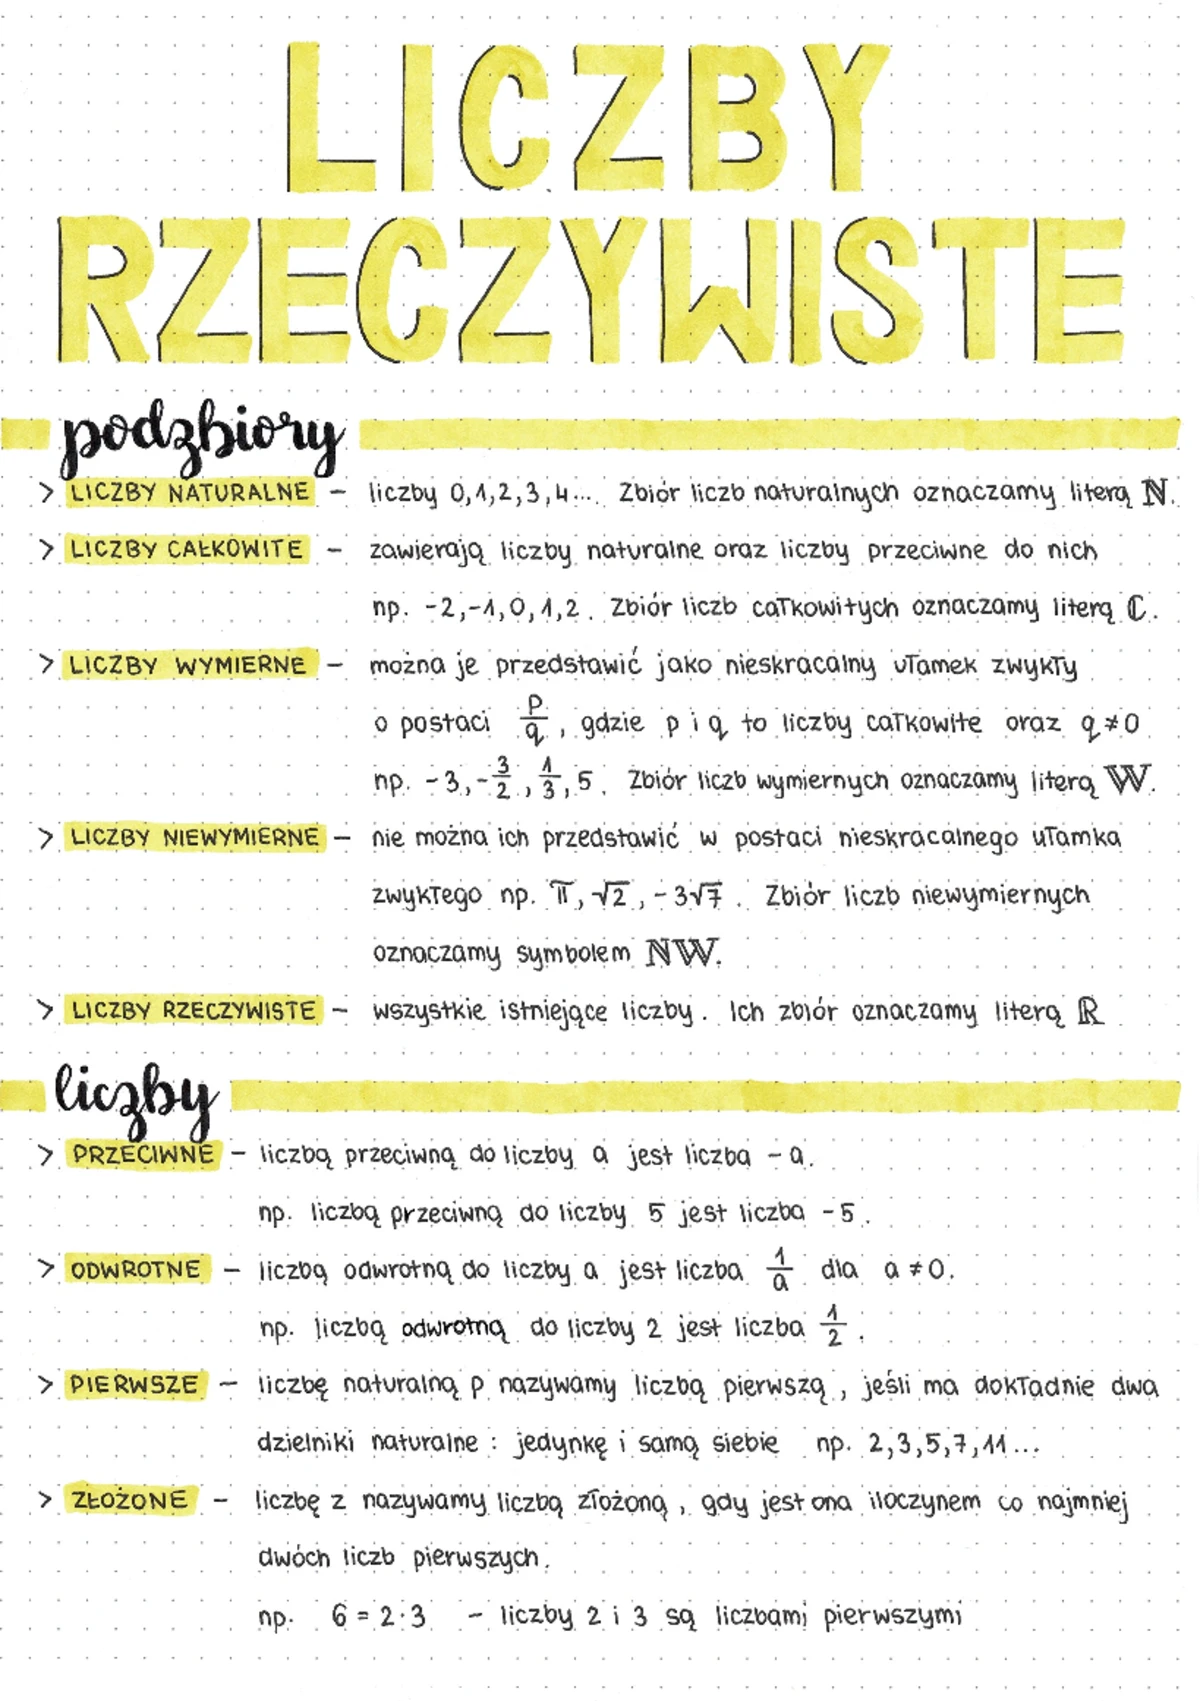 LICZBY
RZECZYWISTE
podzbiory
> LICZBY NATURALNE – liczby 0,1,2,3,4... Zbiór liczb naturalnych oznaczamy literą ℕ.
> LICZBY CAŁKOWITE – zawierają liczby naturalne oraz liczby przeciwne do nich
np. -2,-1,0,1,2. Zbiór liczb całkowitych oznaczamy literą ℂ.
> LICZBY WYMIERNE – można je przedstawić jako nieskracalny ułamek zwykły
o postaci p/q, gdzie p i q to liczby całkowite oraz q≠0
np. -3,-3/2,1/3,5. Zbiór liczb wymiernych oznaczamy literą W.
> LICZBY NIEWYMIERNE – nie można ich przedstawić w postaci nieskracalnego ułamka
zwykłego np. π, √2, -3√7. Zbiór liczb niewymiernych
oznaczamy symbolem ℕW.
> LICZBY RZECZYWISTE – wszystkie istniejące liczby. Ich zbiór oznaczamy literą ℝ
liczby
> PRZECIWNE – liczbą przeciwną do liczby a jest liczba -a.
np. liczbą przeciwną do liczby 5 jest liczba -5.
> ODWROTNE – liczbą odwrotną do liczby a jest liczba 1/a dla a≠0.
np. liczbą odwrotną do liczby 2 jest liczba 1/2.
> PIERWSZE – liczbę naturalną p nazywamy liczbą pierwszą, jeśli ma dokładnie dwa
dzielniki naturalne: jedynkę i samą siebie np. 2,3,5,7,11...
> ZŁOŻONE – liczbę z nazywamy liczbą złożoną, gdy jest ona iloczynem co najmniej
dwóch liczb pierwszych.
np. 6=2·3 – liczby 2 i 3 są liczbami pierwszymi